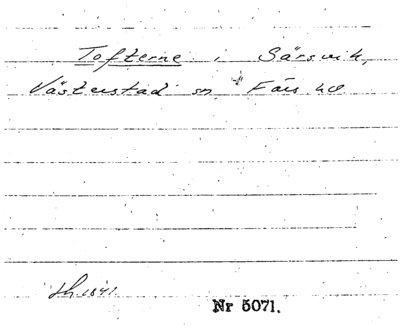 Tofterne i Särsvik,
Västerstad sn, Färs hd
Nr 5071.